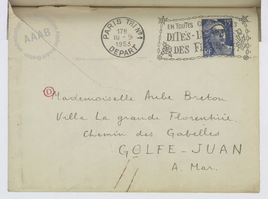 AAAB
PARIS TRI Nº1
17H
10-9
1953
DEPART
EN TOUTES
DITES-
DES
Mademoiselle Aube Breton
Villa La grande Florentine
Chemin des Gabelles
GOLFE-JUAN
A. Mar.